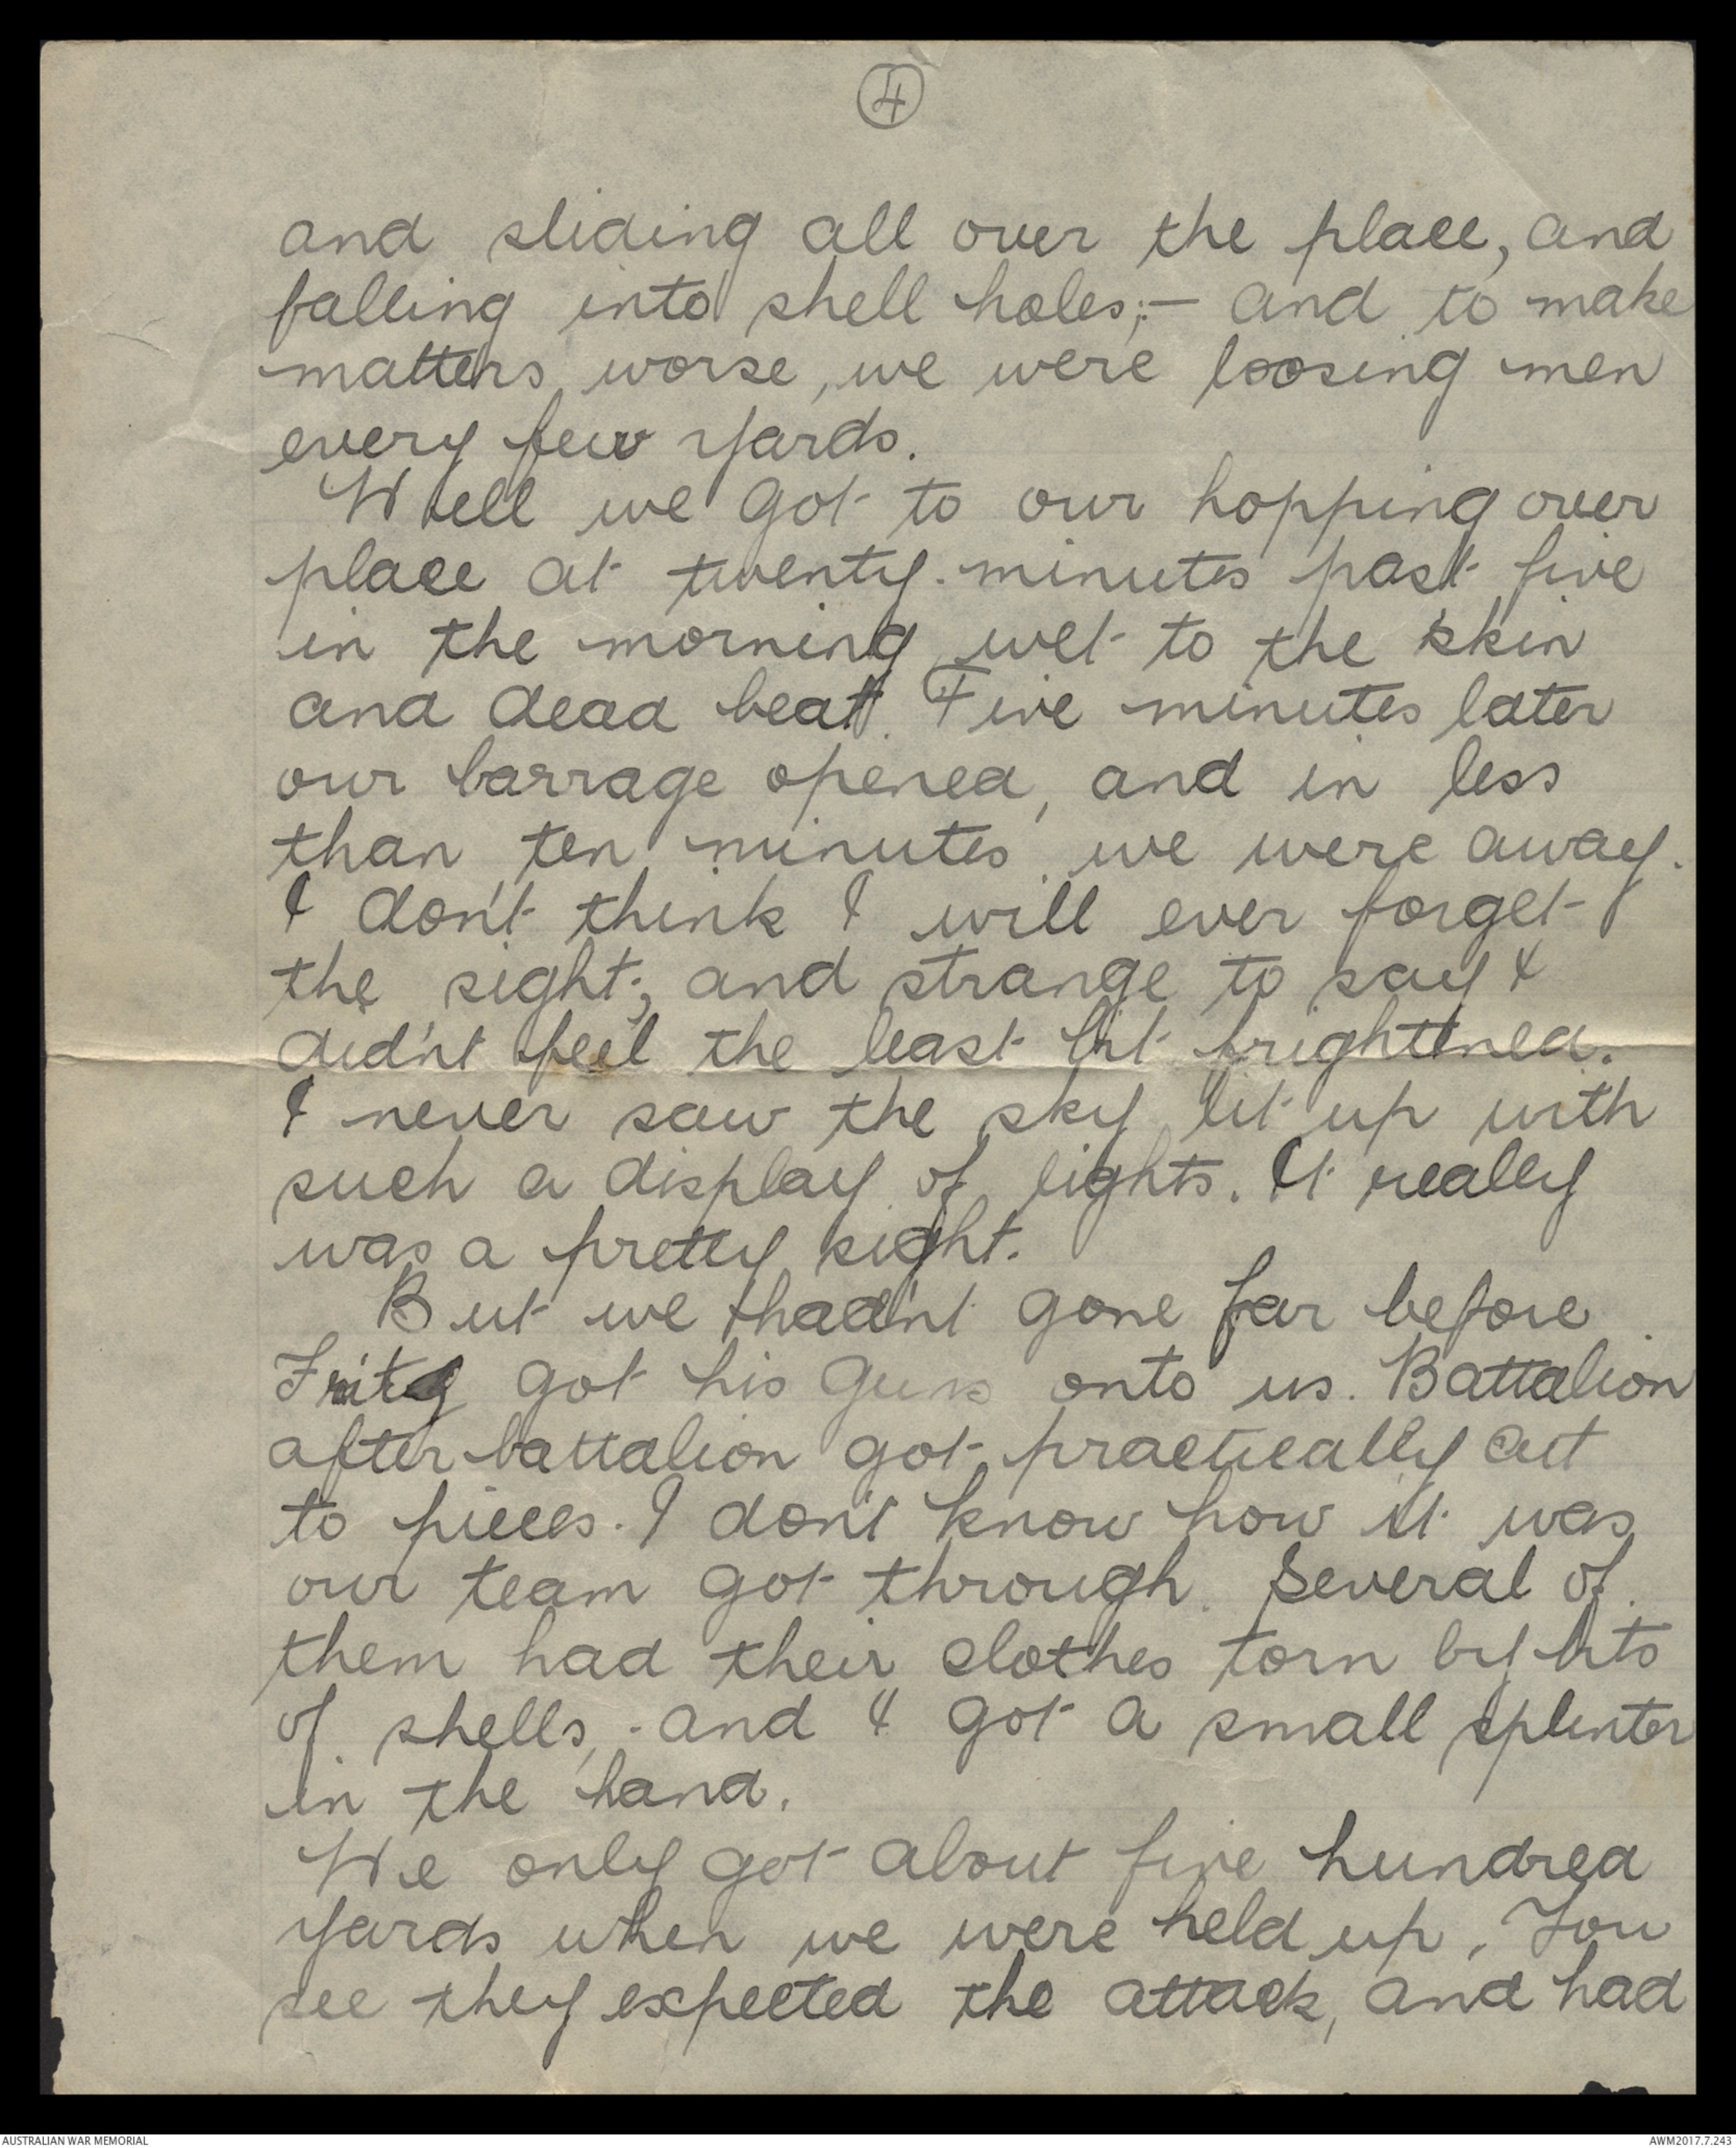 4
and sliding all over the place, and
falling into shell holes;- and to make
matters worse, we were loosing men
every few yards.
Well we got to our hopping over
place at twenty minutes past five
in the morning, wet to the skin
and dead beat. Five minutes later
our barrage opened, and in less
than ten minutes we were away.
I don't think I will ever forget
the sight; and strange to say I
didn't feel the least bit frightened.
I never saw the sky lit up with
such a display of lights. It really
was a pretty sight.
But we hadn't gone far before
Fritz got his guns onto us. Battalion
after battalion got practically cut
to pieces. I don't know how it was
our team got through. Several of
them had their clothes torn by bits
of shells, and I got a small splinter
in the hand.
We only got about five hundred
yards when we were held up. You
see they expected the attack, and had
AUSTRALIAN WAR MEMORIAL
AWM2017.7.243